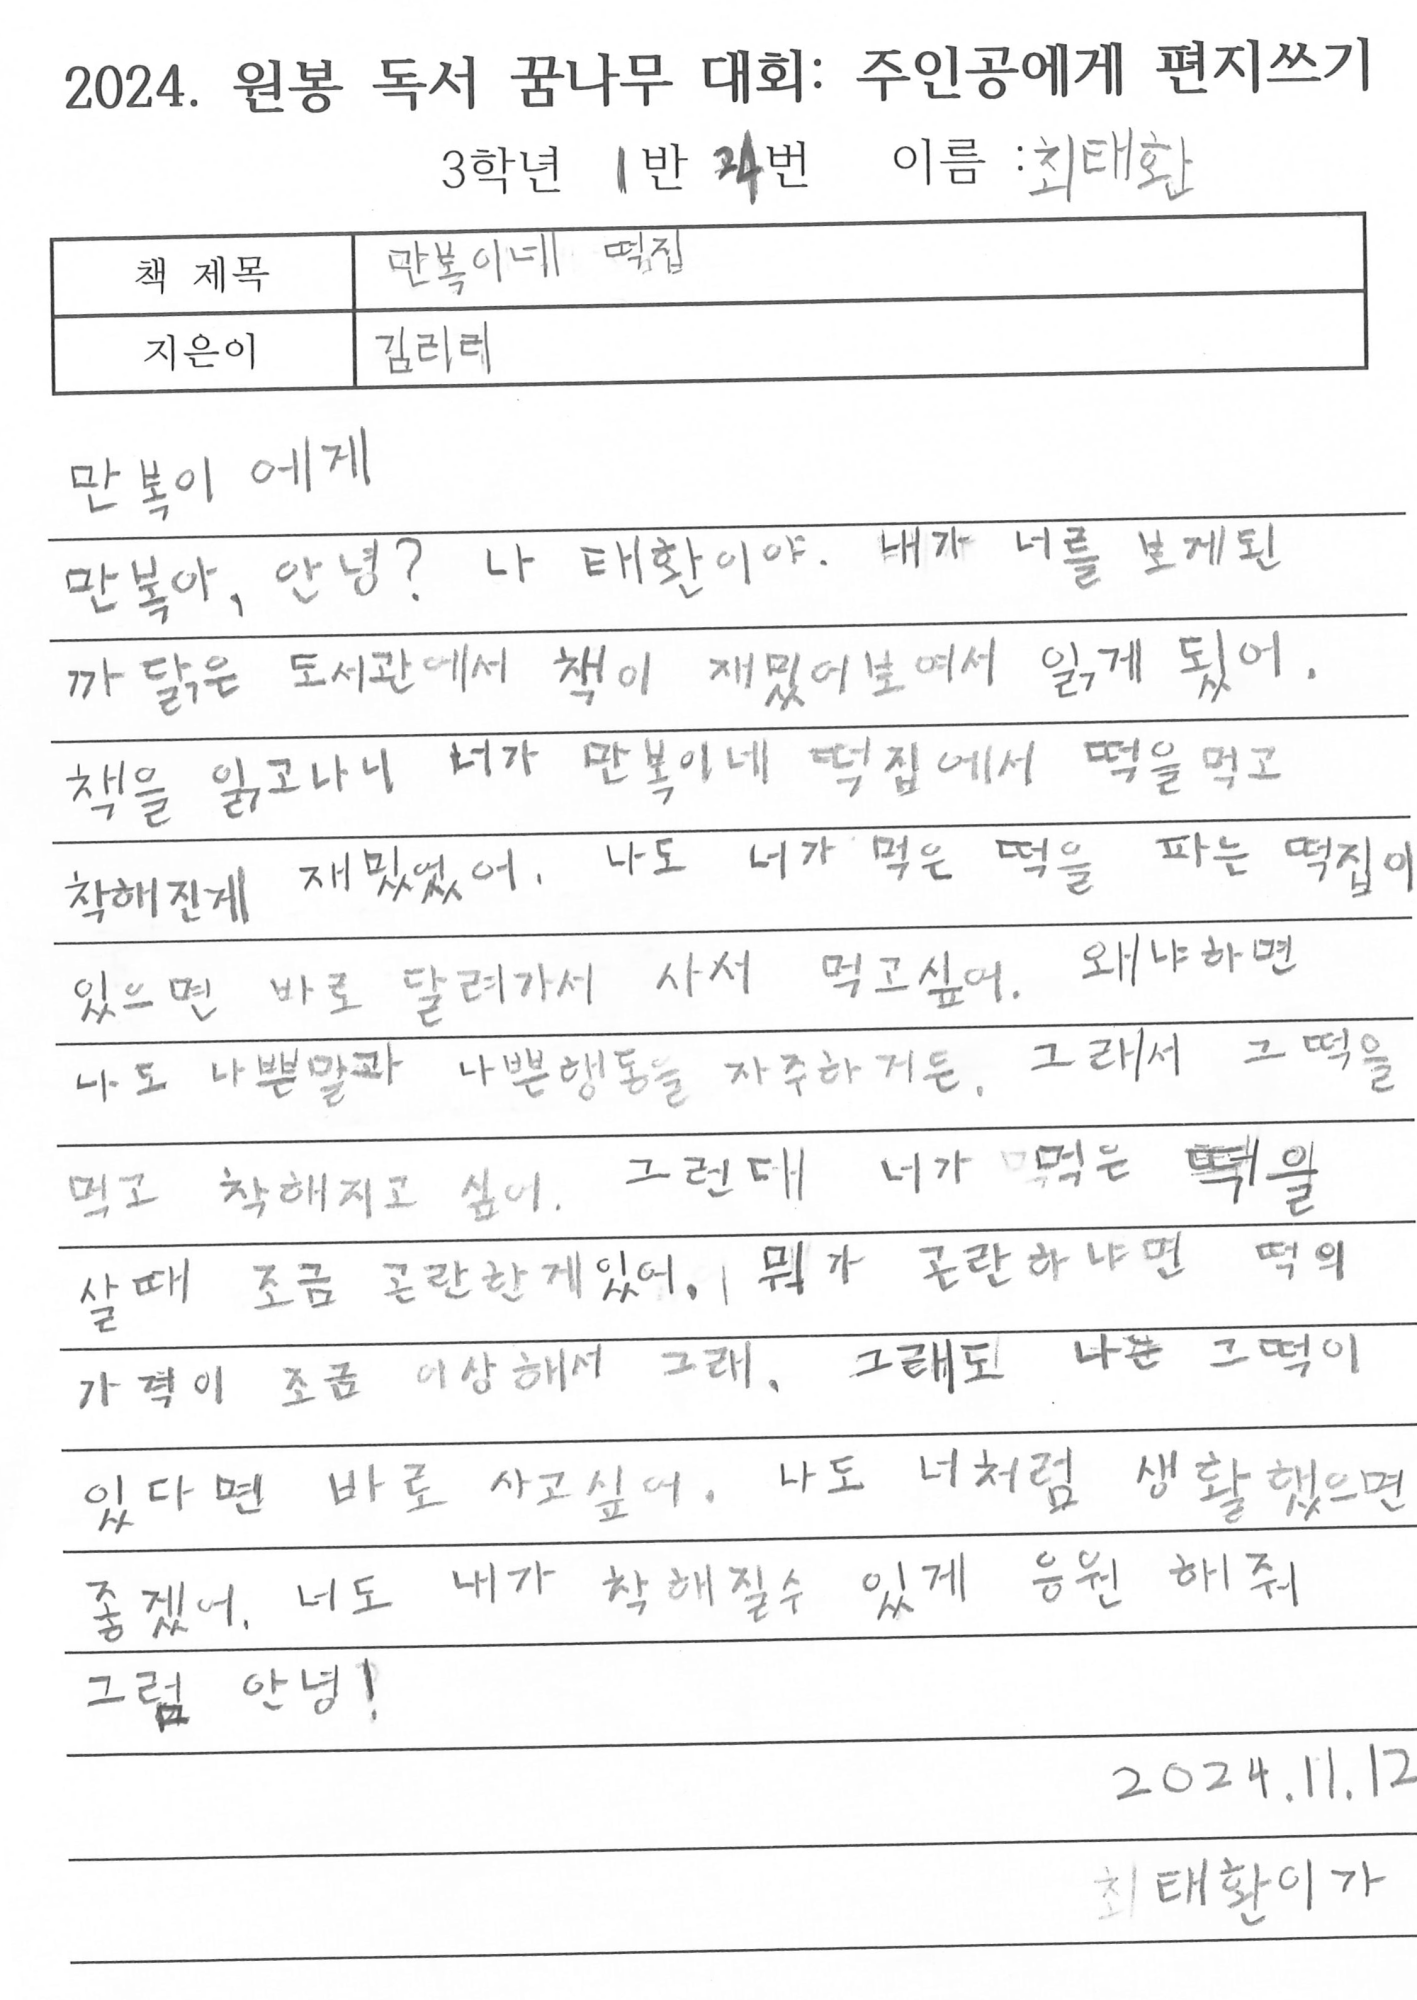 2024. 원봉 독서 꿈나무 대회: 주인공에게 편지쓰기
3학년 1반 24번 이름 : 최태환
책 제목 만복이네 떡집
지은이 김리리
만복이 에게
만복아, 안녕? 나 태환이야. 내가 너를 보게된
까닭은 도서관에서 책이 재밌어보여서 읽게 됬어.
책을 읽고나니 너가 만복이네 떡집에서 떡을 먹고
착해진게 재밌었어. 나도 너가 먹은 떡을 파는 떡집이
있으면 바로 달려가서 사서 먹고싶어. 왜냐하면
나도 나쁜말과 나쁜행동을 자주하거든. 그래서 그 떡을
먹고 착해지고 싶어. 그런데 너가 먹은 떡을
살때 조금 곤란한게있어. 뭐가 곤란하냐면 떡의
가격이 조금 이상해서 그래. 그래도 나는 그떡이
있다면 바로 사고싶어. 나도 너처럼 생활했으면
좋겠어. 너도 내가 착해질수 있게 응원 해줘
그럼 안녕!
2024.11.12
최태환이가